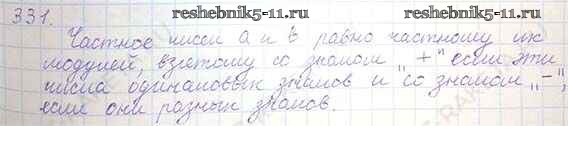 331. reshebnik5-11.ru
Частное чисел a и b равно частному их
модулей, взятому со знаком „+" если эти
числа одинаковых знаков и со знаком „-",
если они разных знаков.
reshebnik5-11.ru